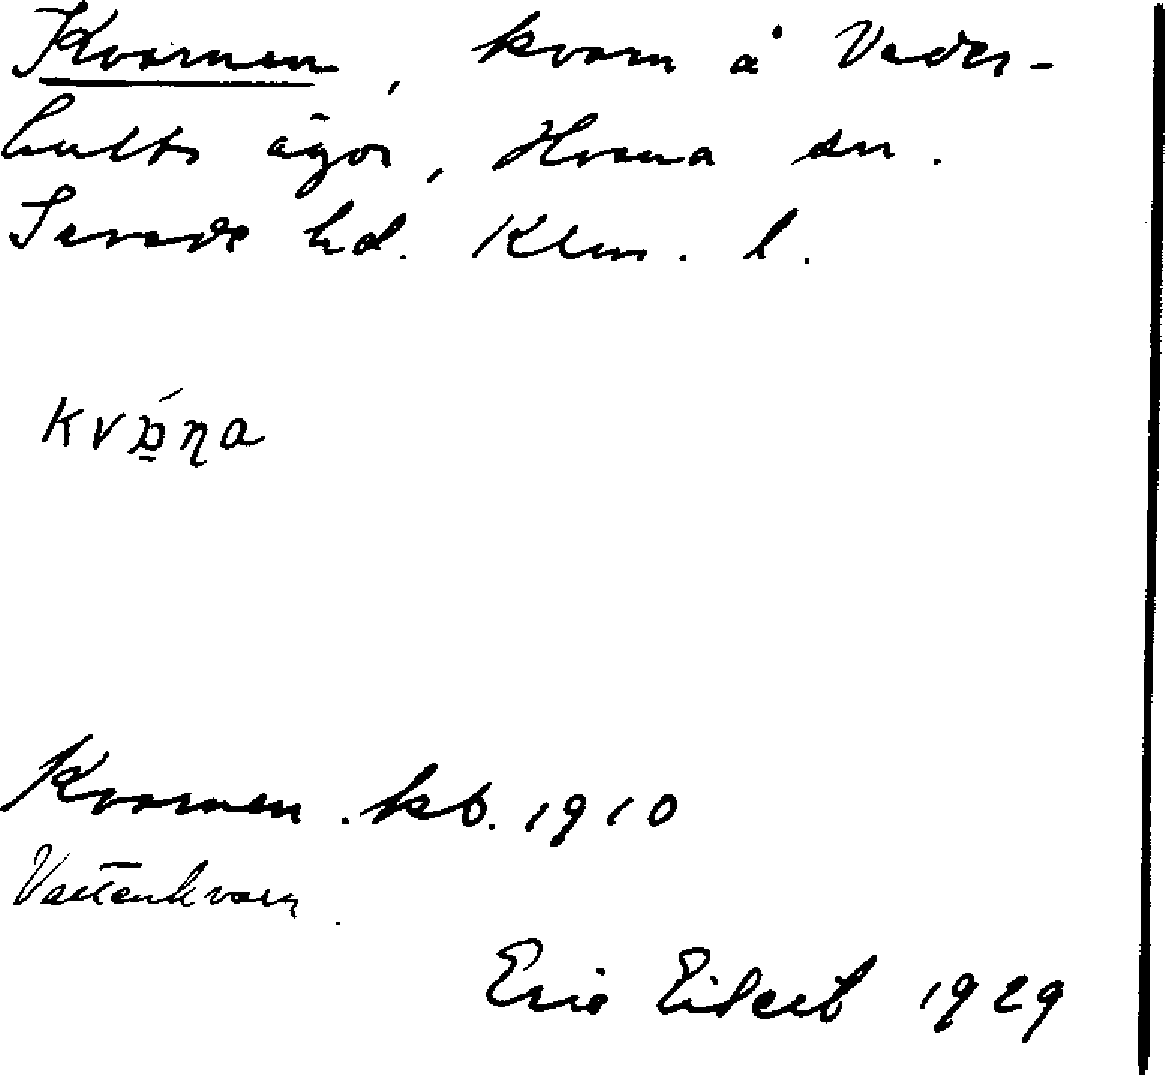 Kvarnen, kvarn å Veder-
hults ägor, Hvena sn.
Sevede hd. Klm. l.
Kvarnen. kb. 1910
Vattenkvarn
Eric 1929